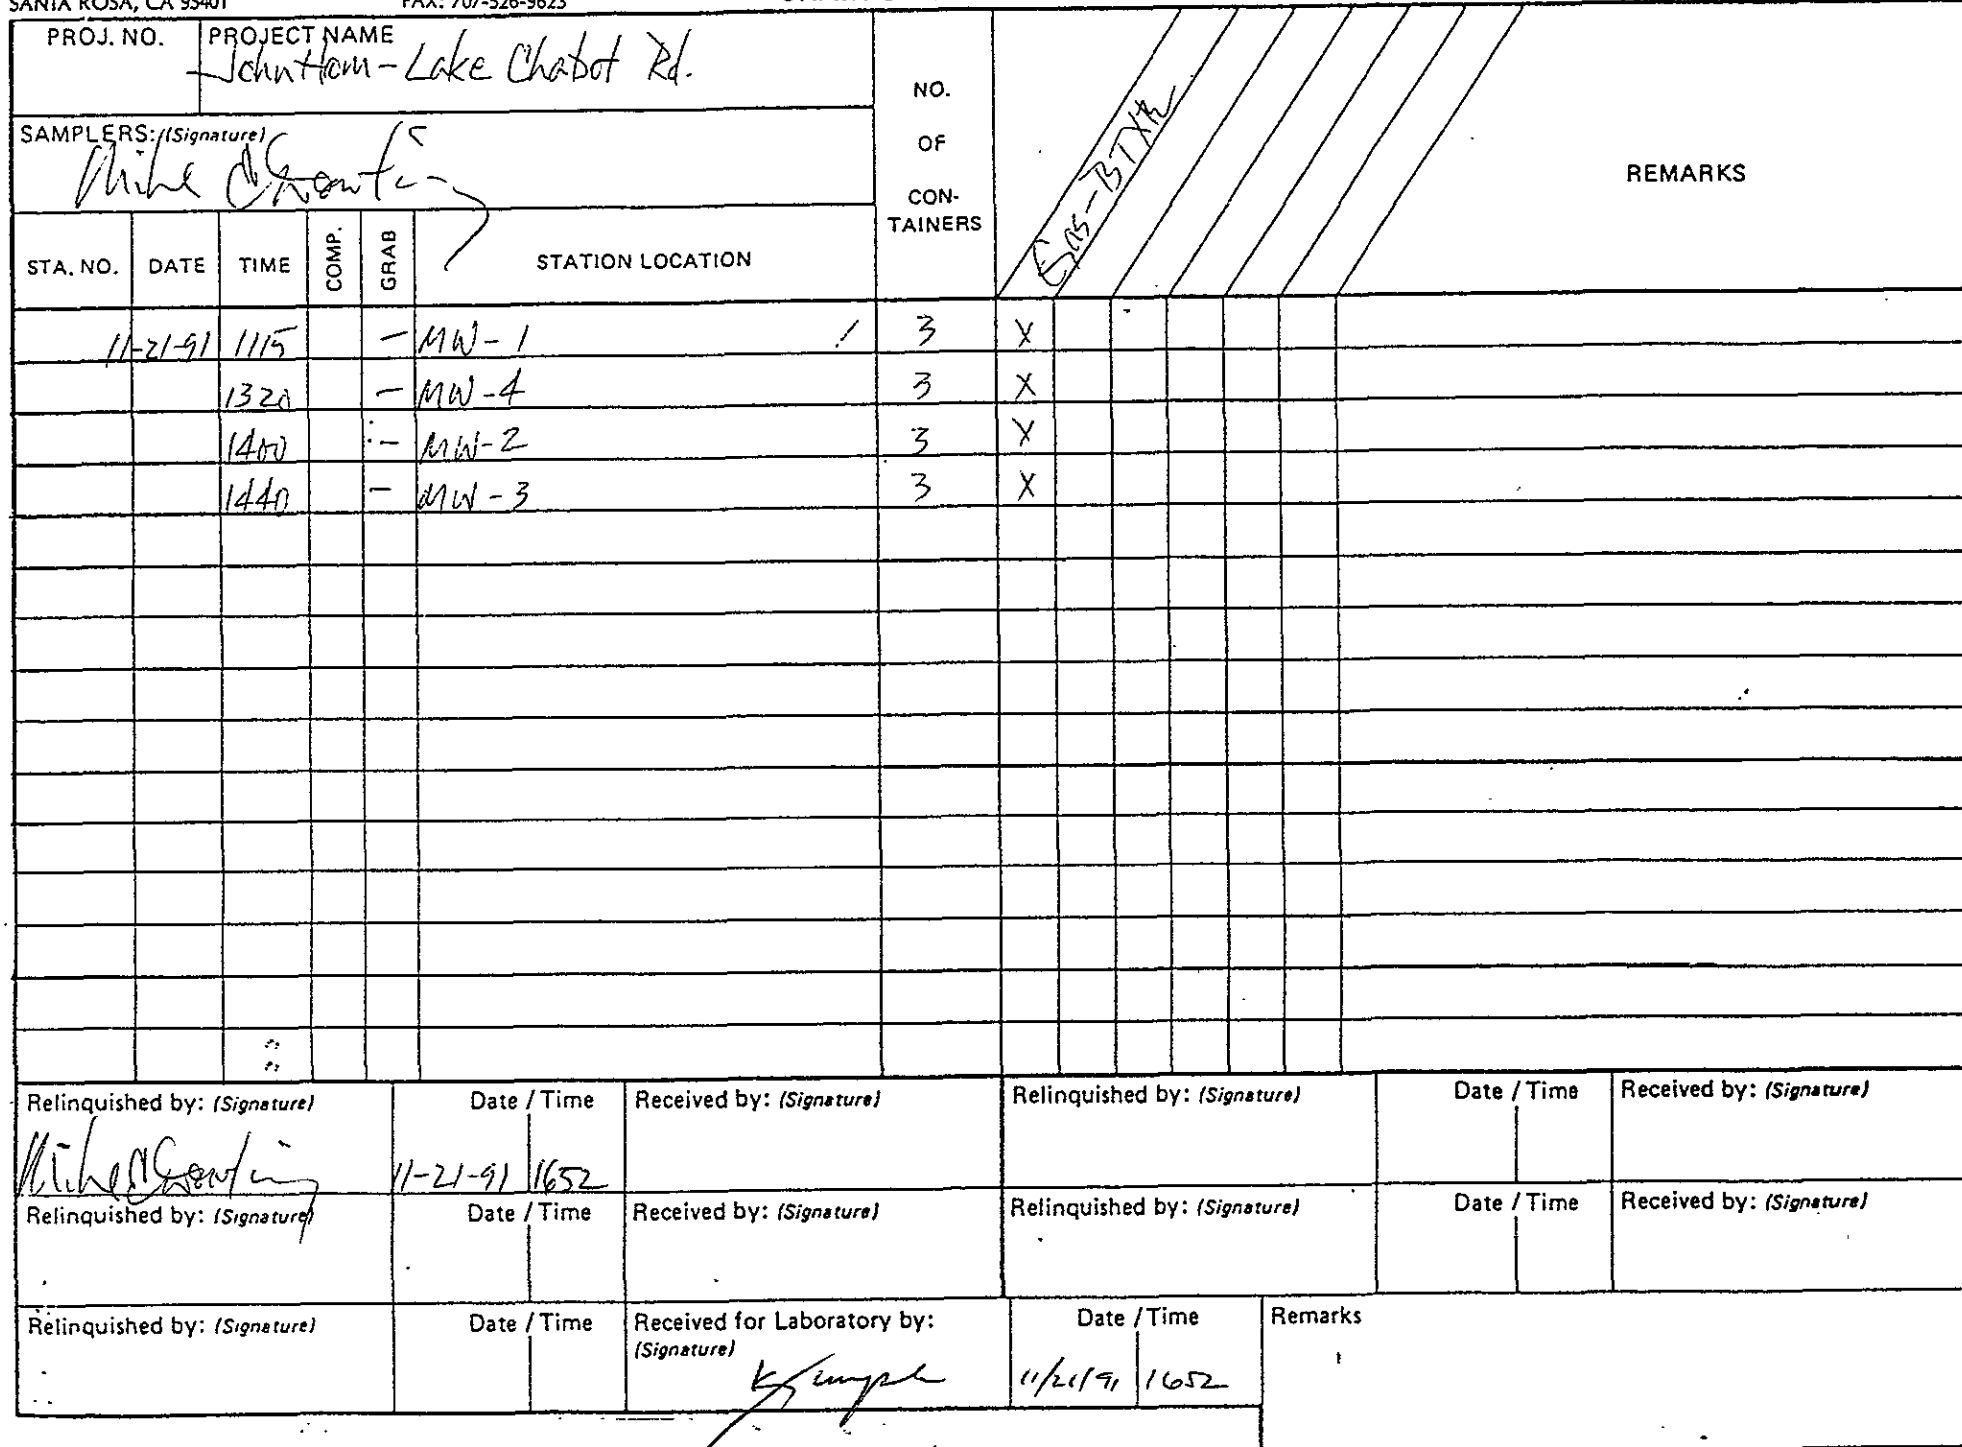 SANTA ROSA, CA 95401 FAX: 707-526-9623
PROJ. NO. PROJECT NAME
John Hom - Lake Chabot Rd.
SAMPLERS: (Signature)
Mike
NO. OF CON-TAINERS
Gas-BTXE
REMARKS
STA. NO. DATE TIME COMP. GRAB STATION LOCATION
11-21-91 1115 - MW-1 3 X
1320 - MW-4 3 X
1400 - MW-2 3 X
1440 - MW-3 3 X
Relinquished by: (Signature) Date / Time Received by: (Signature) Relinquished by: (Signature) Date / Time Received by: (Signature)
Mike 11-21-91 1652
Relinquished by: (Signature) Date / Time Received by: (Signature) Relinquished by: (Signature) Date / Time Received by: (Signature)
Relinquished by: (Signature) Date / Time Received for Laboratory by: (Signature) Date / Time Remarks
11/21/91 1652